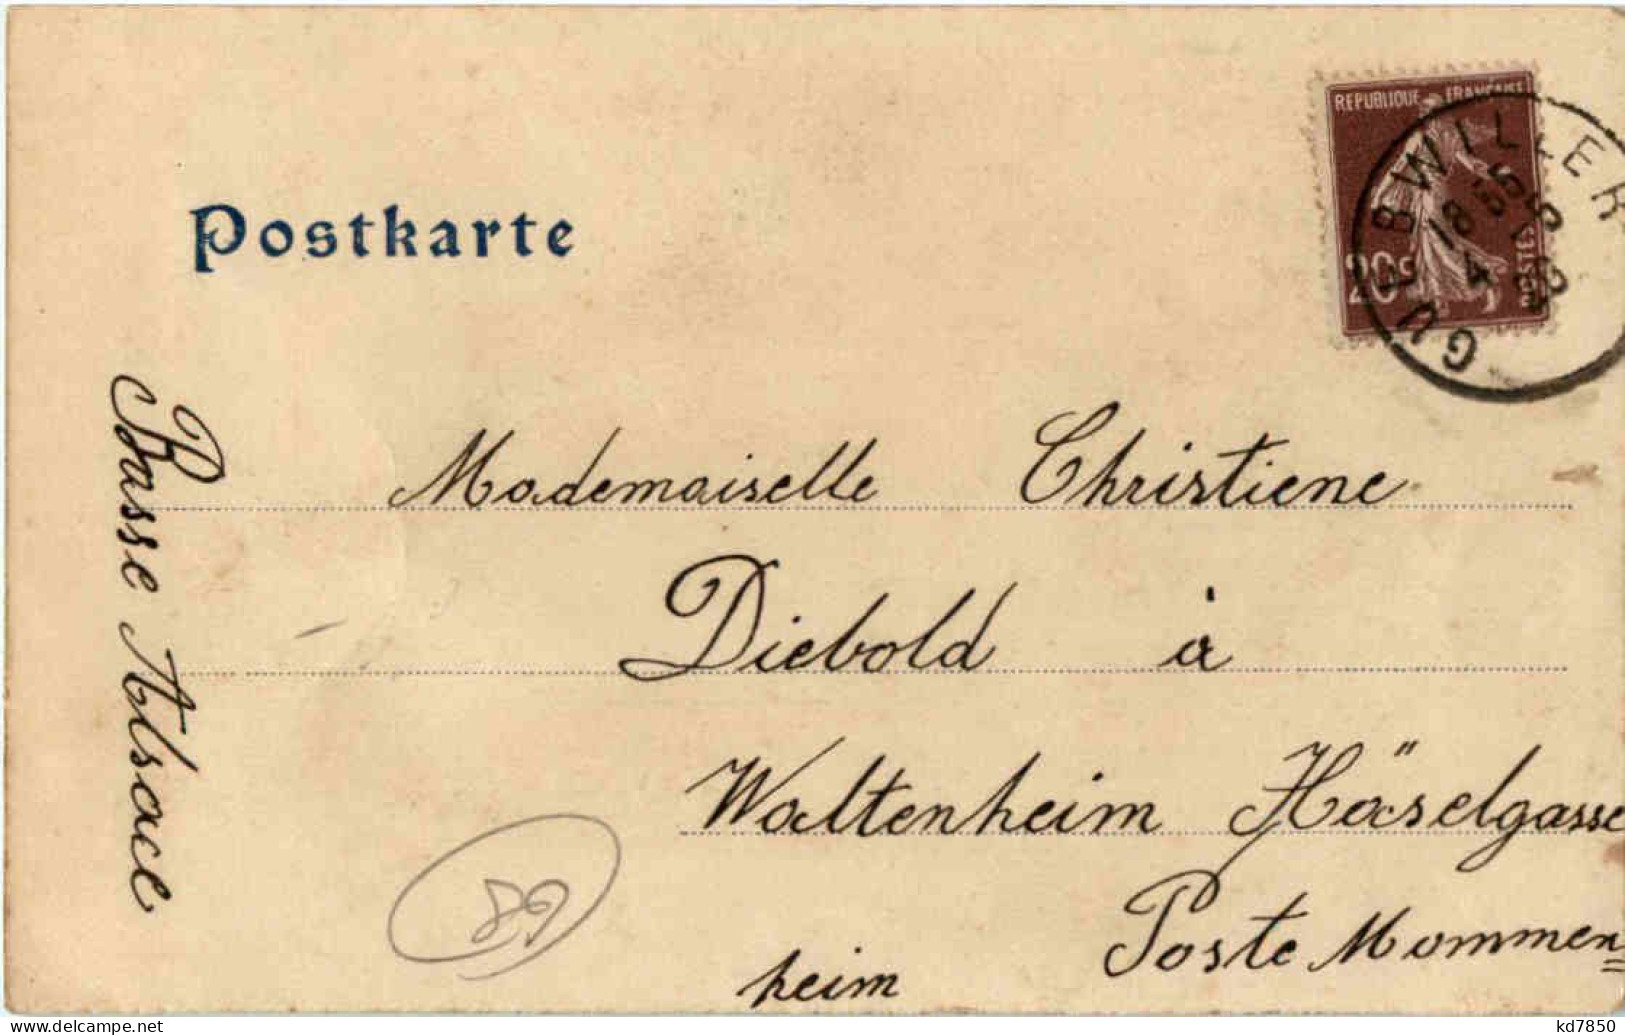 Postkarte
REPUBLIQUE FRANÇAISE
20c
POSTES
GUEBWILLER
18 35
4
Mademaiselle Christiene
Diebold à
Waltenheim Häselgasse
Poste Mommen=
heim
Basse Alsace
89
Delcampe.net
kd7850